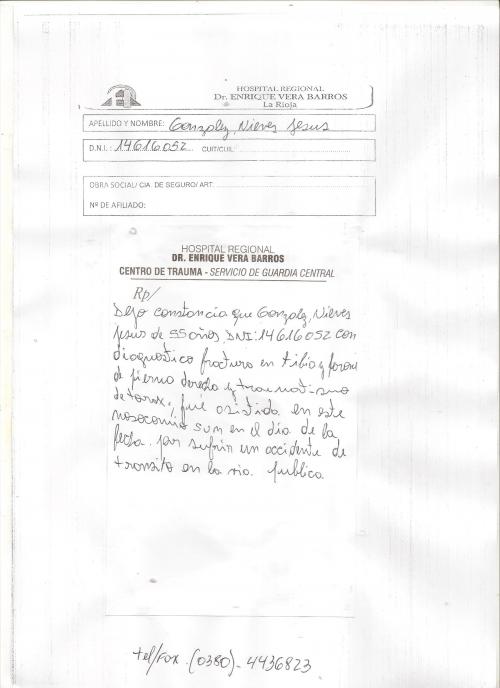 HOSPITAL REGIONAL
Dr. ENRIQUE VERA BARROS
La Rioja
APELLIDO Y NOMBRE: Gonzalez Nieves Jesus
D.N.I.: 14616052 CUIT/CUIL:
OBRA SOCIAL/ CIA. DE SEGURO/ ART:
Nº DE AFILIADO:
HOSPITAL REGIONAL
DR. ENRIQUE VERA BARROS
CENTRO DE TRAUMA - SERVICIO DE GUARDIA CENTRAL
Rp/
Dejo constancia que Gonzalez, Nieves
Jesus de 55 años, DNI: 14616052 con
diagnostico fractura en tibia y
de pierna derecha y traumatismo
de torax, fué asistida en este
nosocomio en el dia de la
fecha. por sufrir un accidente de
transito en la via publica
tel/Fax. (0380)-4436823